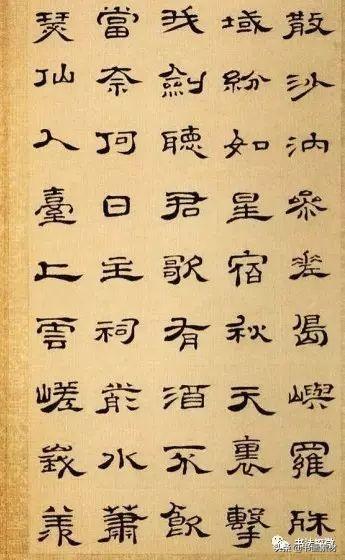 散沙汭參差島嶼羅殊
域紛如星宿秋天裏擊
我劍聽君歌有酒不飲
當奈何日主祠前水蕭
瑟仙人臺上雲嵯峩羨